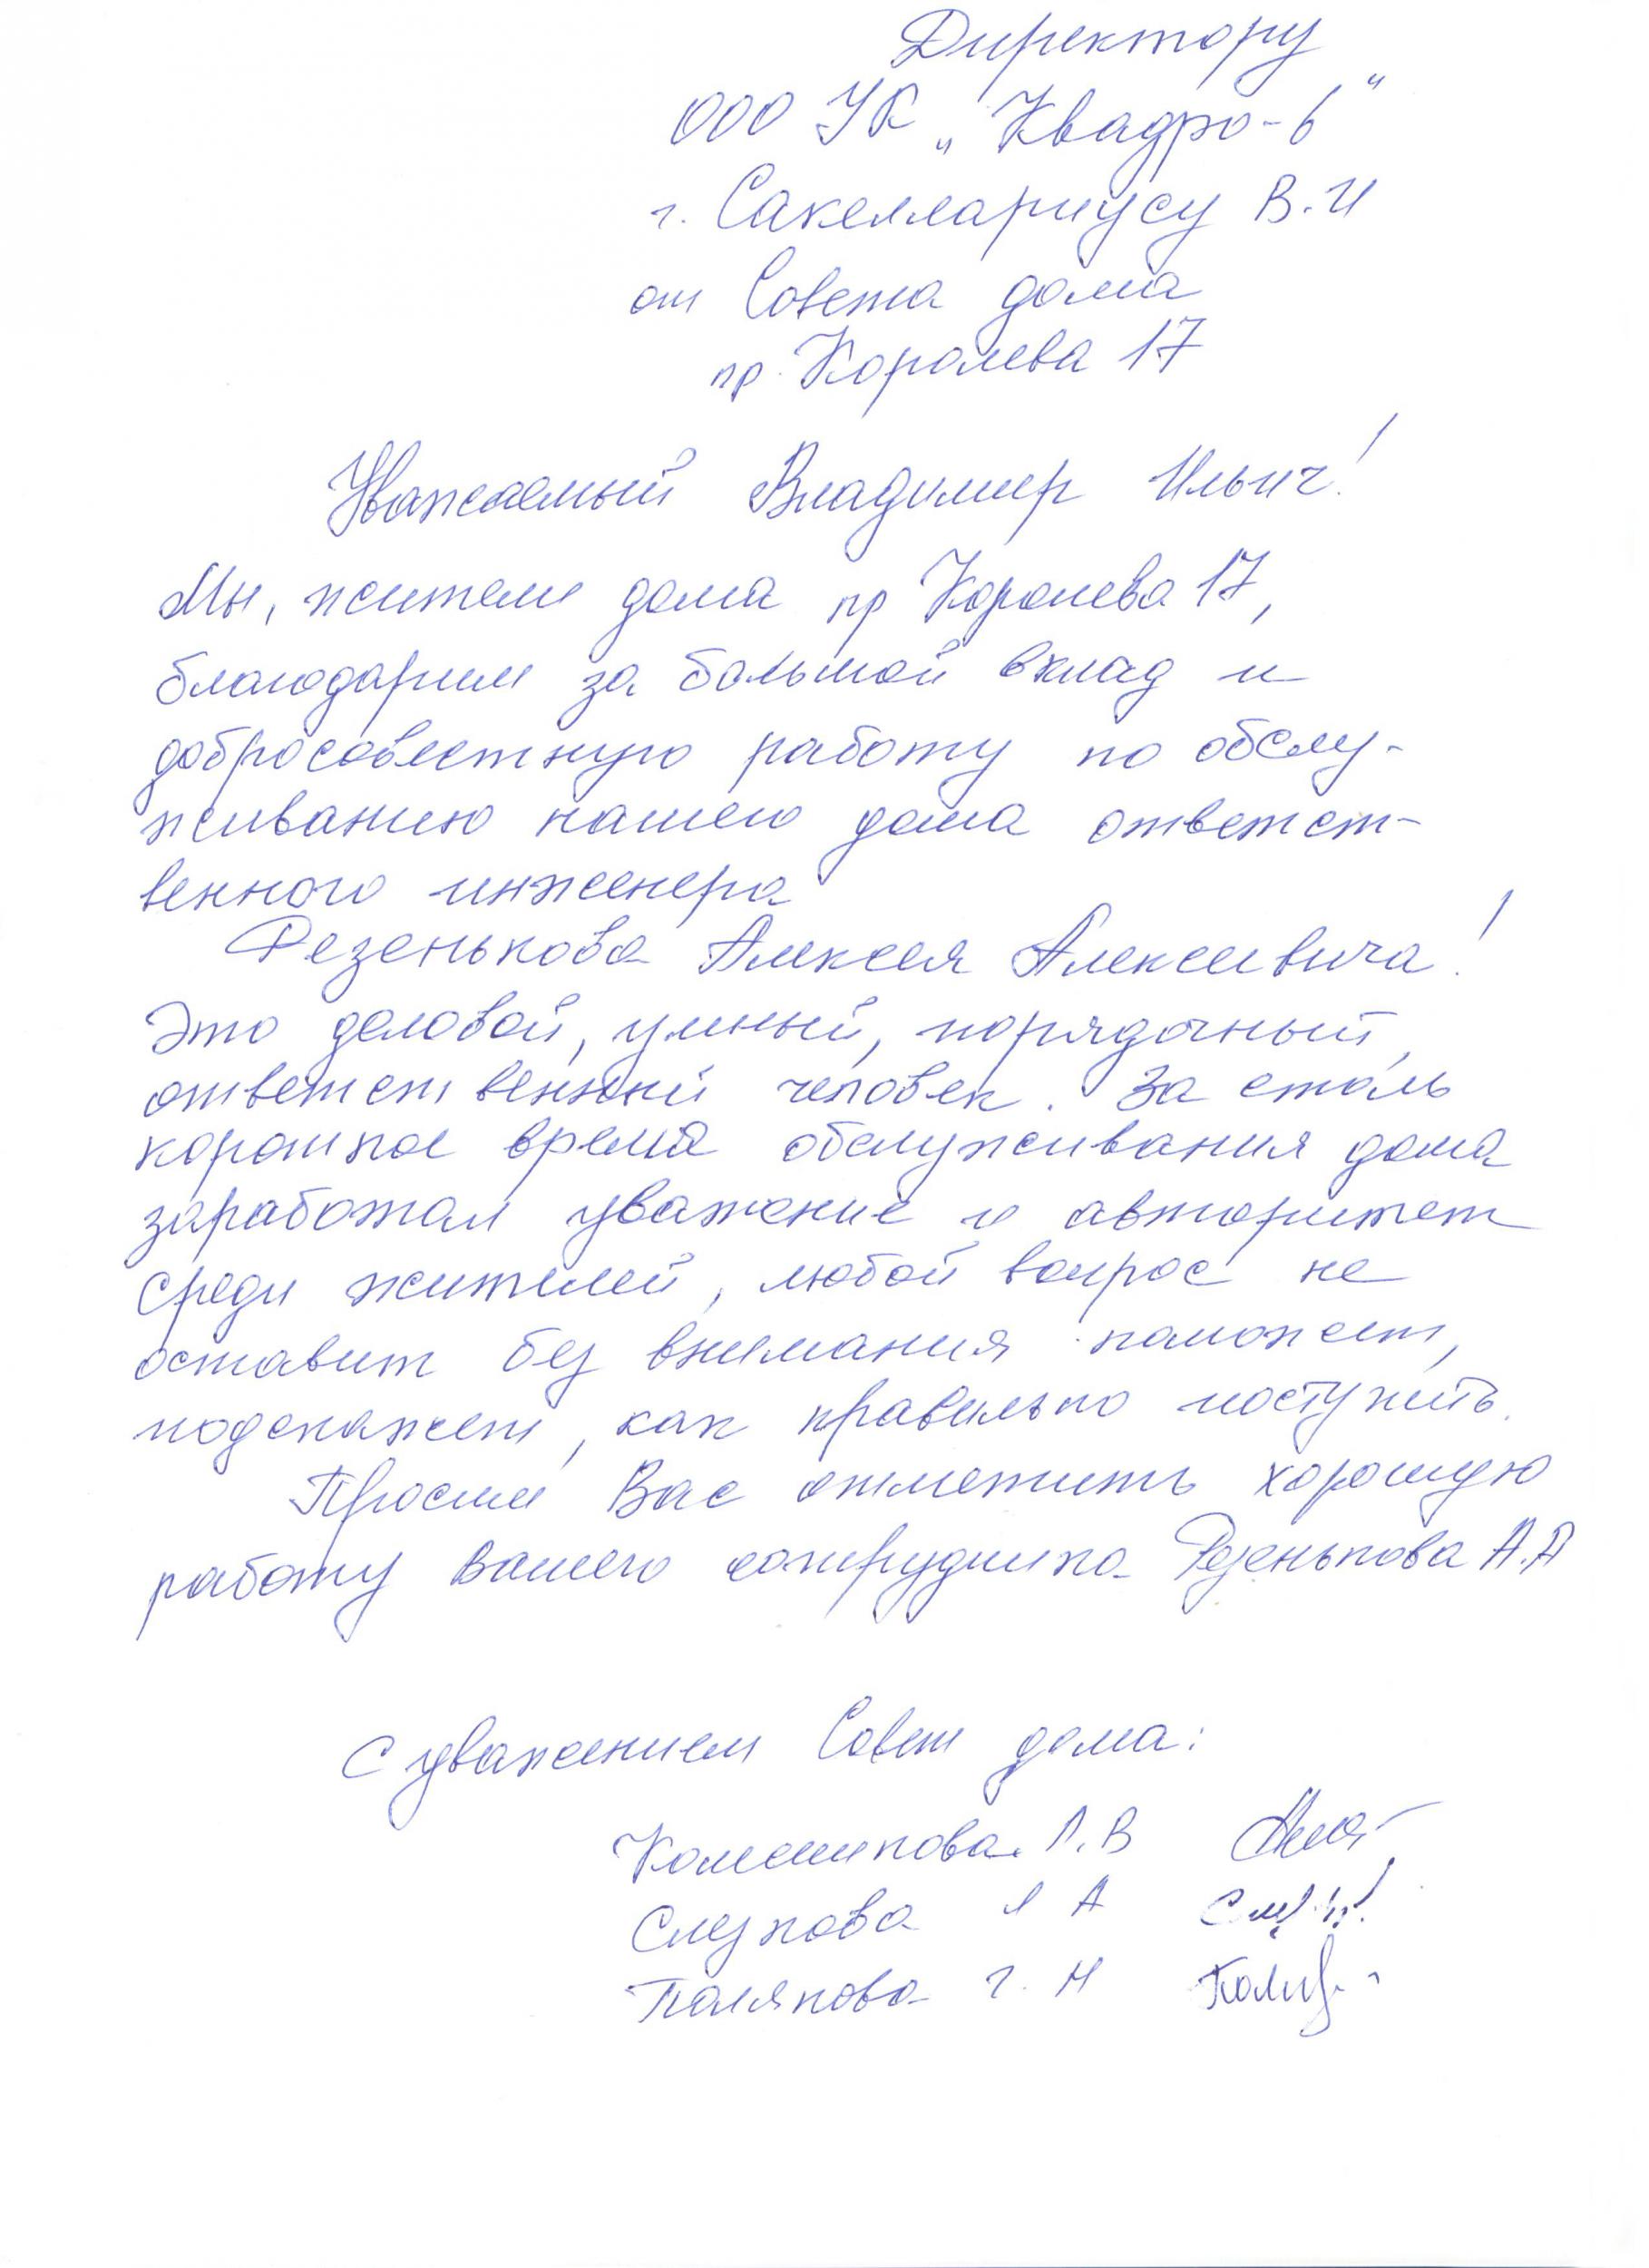 Директору
ООО УК „Квадро-6"
г. Сакеллариусу В.И
от Совета дома
пр. Королева 17
Уважаемый Владимир Ильич!
Мы, жители дома пр Королева 17,
благодарим за большой вклад и
добросовестную работу по обслу-
живанию нашего дома ответст-
венного инженера
Резенькова Алексея Алексеевича!
Это деловой, умный, порядочный,
ответственный человек. За столь
короткое время обслуживания дома
заработал уважение и авторитет
среди жителей, любой вопрос не
оставит без внимания поможет,
подскажет, как правильно поступить.
Просим Вас отметить хорошую
работу Вашего сотрудника Резенькова А.А
С уважением Совет дома:
Л.В
Слезкова Л А
Полякова Г. Н